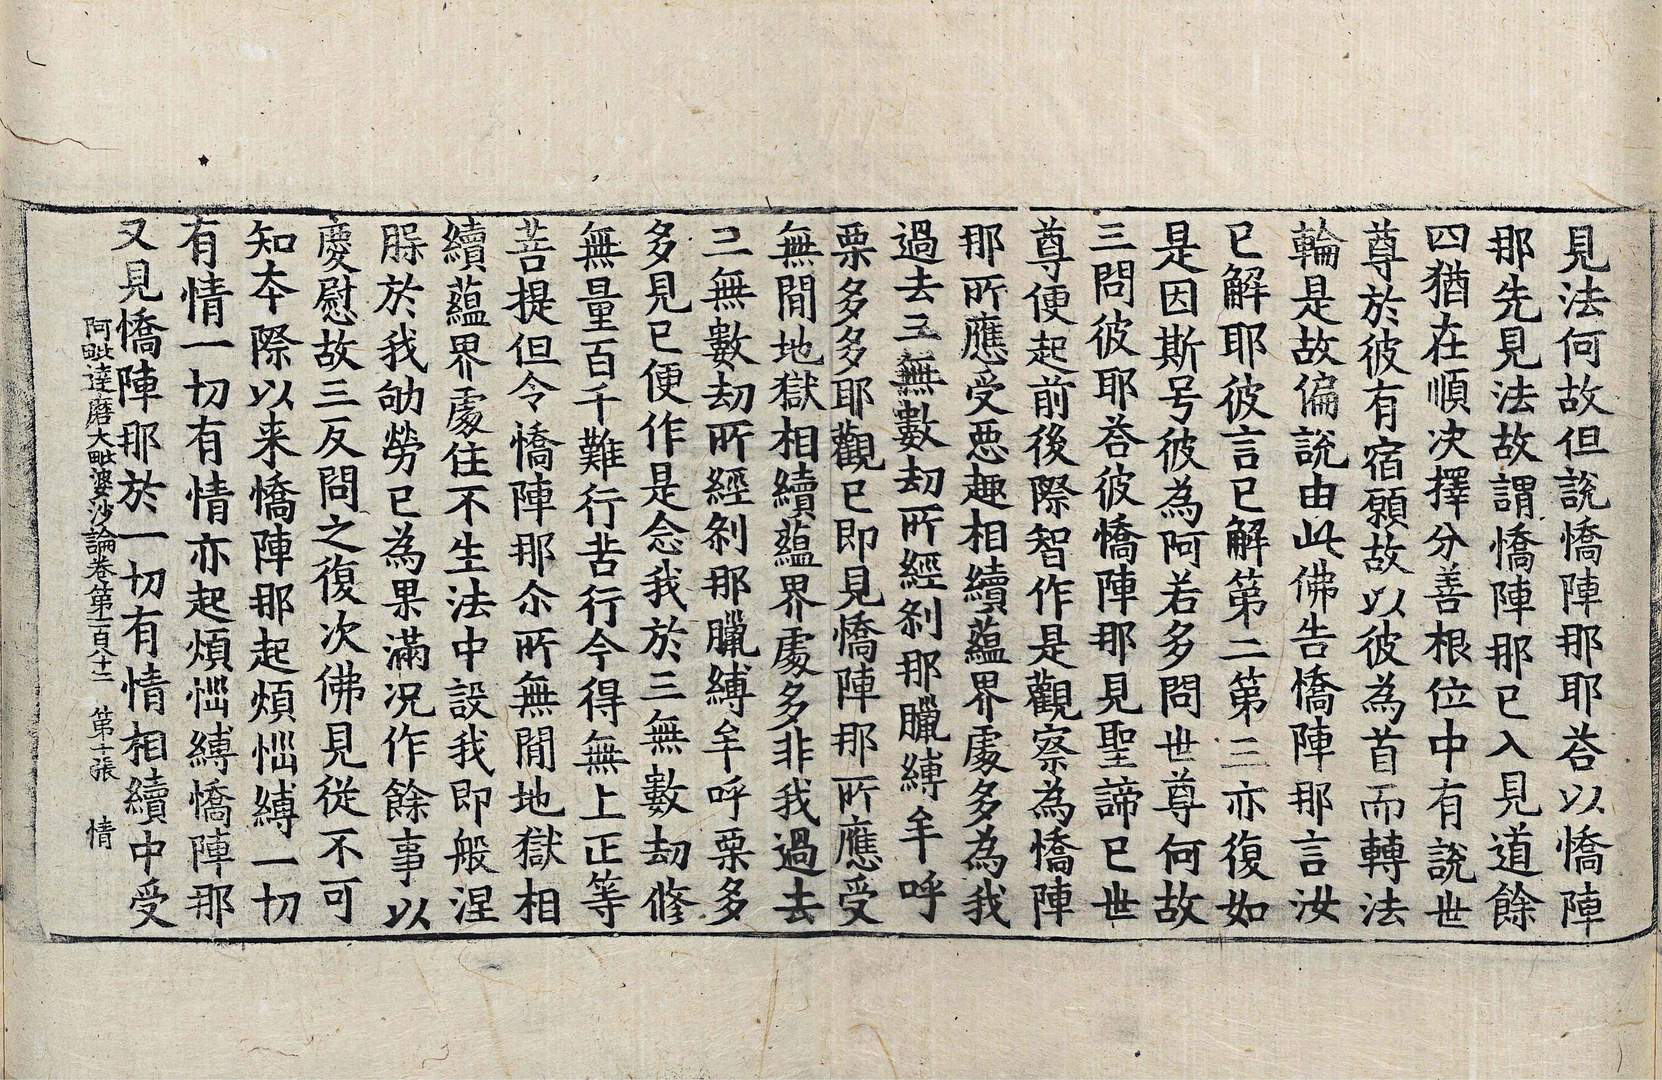 見法何故但說憍陣那耶荅以憍陣
那先見法故謂憍陣那已入見道餘
四猶在順决擇分善根位中有說世
尊於彼有宿願故以彼為首而轉法
輪是故偏說由此佛告憍陣那言汝
已解耶彼言已解第二第三亦復如
是因斯号彼為阿若多問世尊何故
三問彼耶荅彼憍陣那見聖諦已世
尊便起前後際智作是觀察為憍陣
那所應受惡趣相續蘊界處多為我
過去三無數劫所經剎那臘縛牟呼
栗多多耶觀已即見憍陣那所應受
無閒地獄相續蘊界處多非我過去
三無數劫所經剎那臘縛牟呼栗多
多見已便作是念我於三無數劫修
無量百千難行苦行今得無上正等
菩提但令憍陣那尒所無閒地獄相
續蘊界處住不生法中設我即般涅
槃於我劬勞已為果滿况作餘事以
慶慰故三反問之復次佛見從不可
知本際以来憍陣那起煩惱縛一切
有情一切有情亦起煩惱縛憍陣那
又見憍陣那於一切有情相續中受
阿毗達磨大毗婆沙論卷第一百八十二 第十張 情